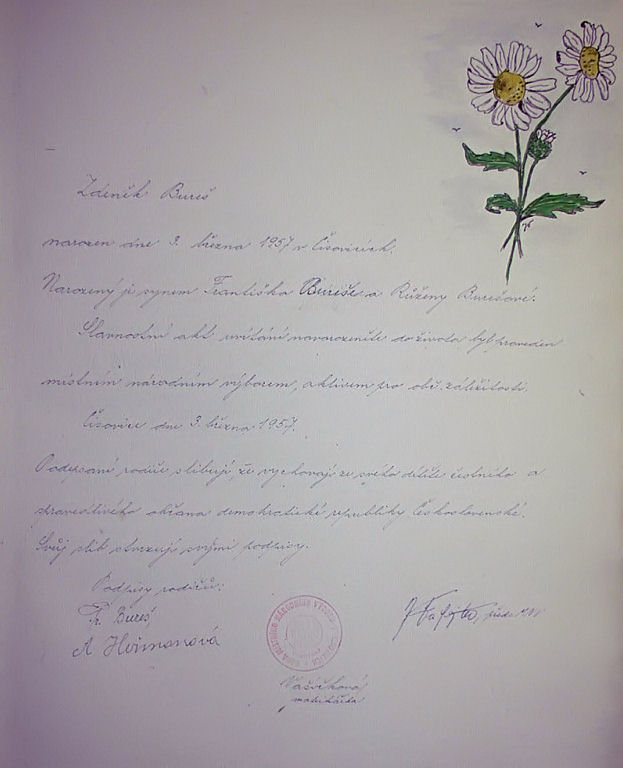 Zdeněk Bureš
narozen dne 3. března 1957 v Čisovicích.
Narozený je synem Františka Bureše a Růženy Burešové.
Slavnostní akt uvítání novorozeněte do života byl proveden
místním národním výborem, aktivem pro obč. záležitosti.
Čisovice dne 3. března 1957.
Podepsaní rodiče slibují, že vychovají ze svého dítěte čestného a
spravedlivého občana demokratické republiky Československé.
Svůj slib stvrzují svými podpisy.
Podpisy rodičů:
Fr. Bureš
A Heřmanová
RADA MÍSTNÍHO NÁRODNÍHO VÝBORU
Vašíčková
matrikářka